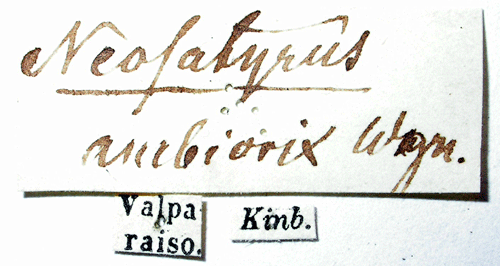 Neosatyrus
ambiorix Wgn.
Valpa
raiso.
Kinb.